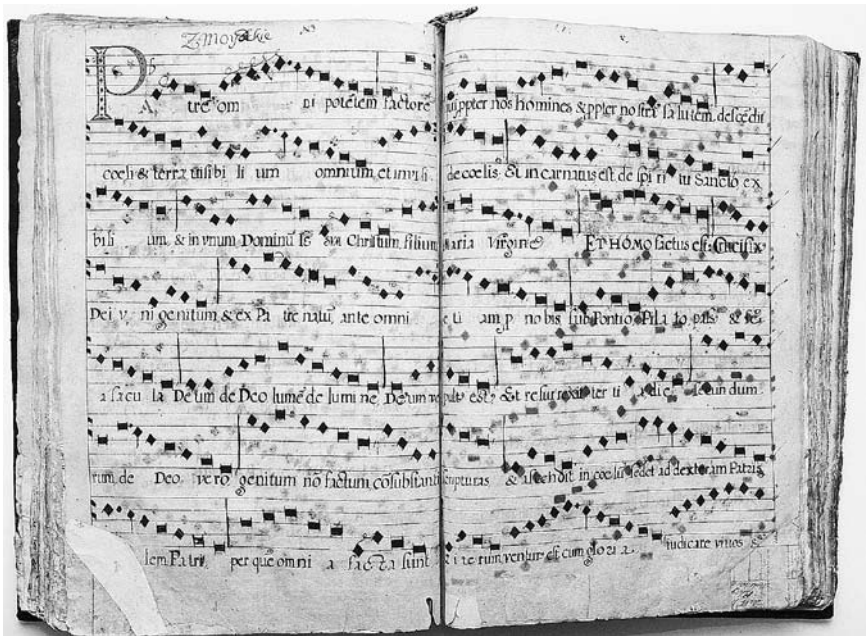 PA tre om ni potētem factorē
coeli & terrę uisibi li um omnium et inuisi
bili um, & in vnum Dominū Christum, filium
Dei v ni genitum & ex Pa tre natū, ante omni
a sæcu la Deum de Deo lumē de lumi ne, Deum ve
rum, de Deo vero genitum nō factum, cōsubstanti
lem Patri, per quē omni a facta sunt
ppter nos homines & ppter nostrā salutem, descēdit
de coelis. Et in carnatus est de spi ri tu Sancto ex
Maria virgine ET HOMO factus est: Crucifix
e ti am p nobis sub Pontio Pila to pass &
pult est Et resurrexit ter ti a die secundum
scripturas & ascendit in coelū sedet ad dexteram Patris
i te rum ventur est cum glo ri a iudicare viuos &